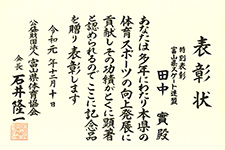 表彰状
特別表彰
富山県スケート連盟
田中 實殿
あなたは多年にわたり本県の
体育スポーツの向上発展に
貢献しその功績がとくに顕著
と認められるのでここに記念品
を贈り表彰します
令和元年十二月十日
公益財団法人 富山県体育協会
会長 石井隆一